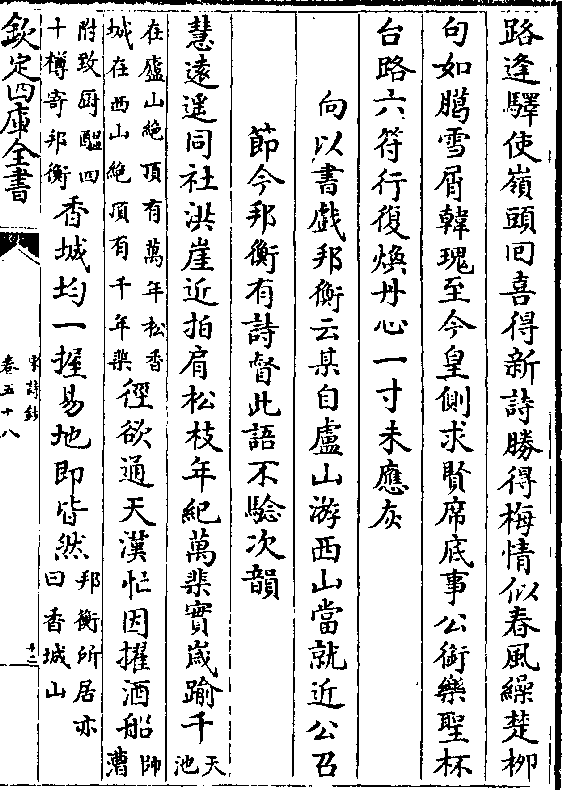 路逢驛使嶺頭囘喜得新詩勝得梅情似春風繰楚栁
句如臈雪屑韓瑰至今皇側求賢席底事公銜樂聖杯
台路六符行復煥丹心一寸未應灰
向以書戯邦衡云某自盧山游西山當就近公召
節今邦衡有詩督此語不驗次韻
慧遠遥同社洪崖近拍肩松枝年紀萬棗實歲踰千天池
在廬山絶頂有萬年松香城在西山絶頂有千年棗徑欲通天漢忙因擢酒船師漕
附致厨醖四十樽寄邦衡香城均一握易地即皆然邦衡所居亦曰香城山
欽定四庫全書
宋詩鈔
卷五十八
十三